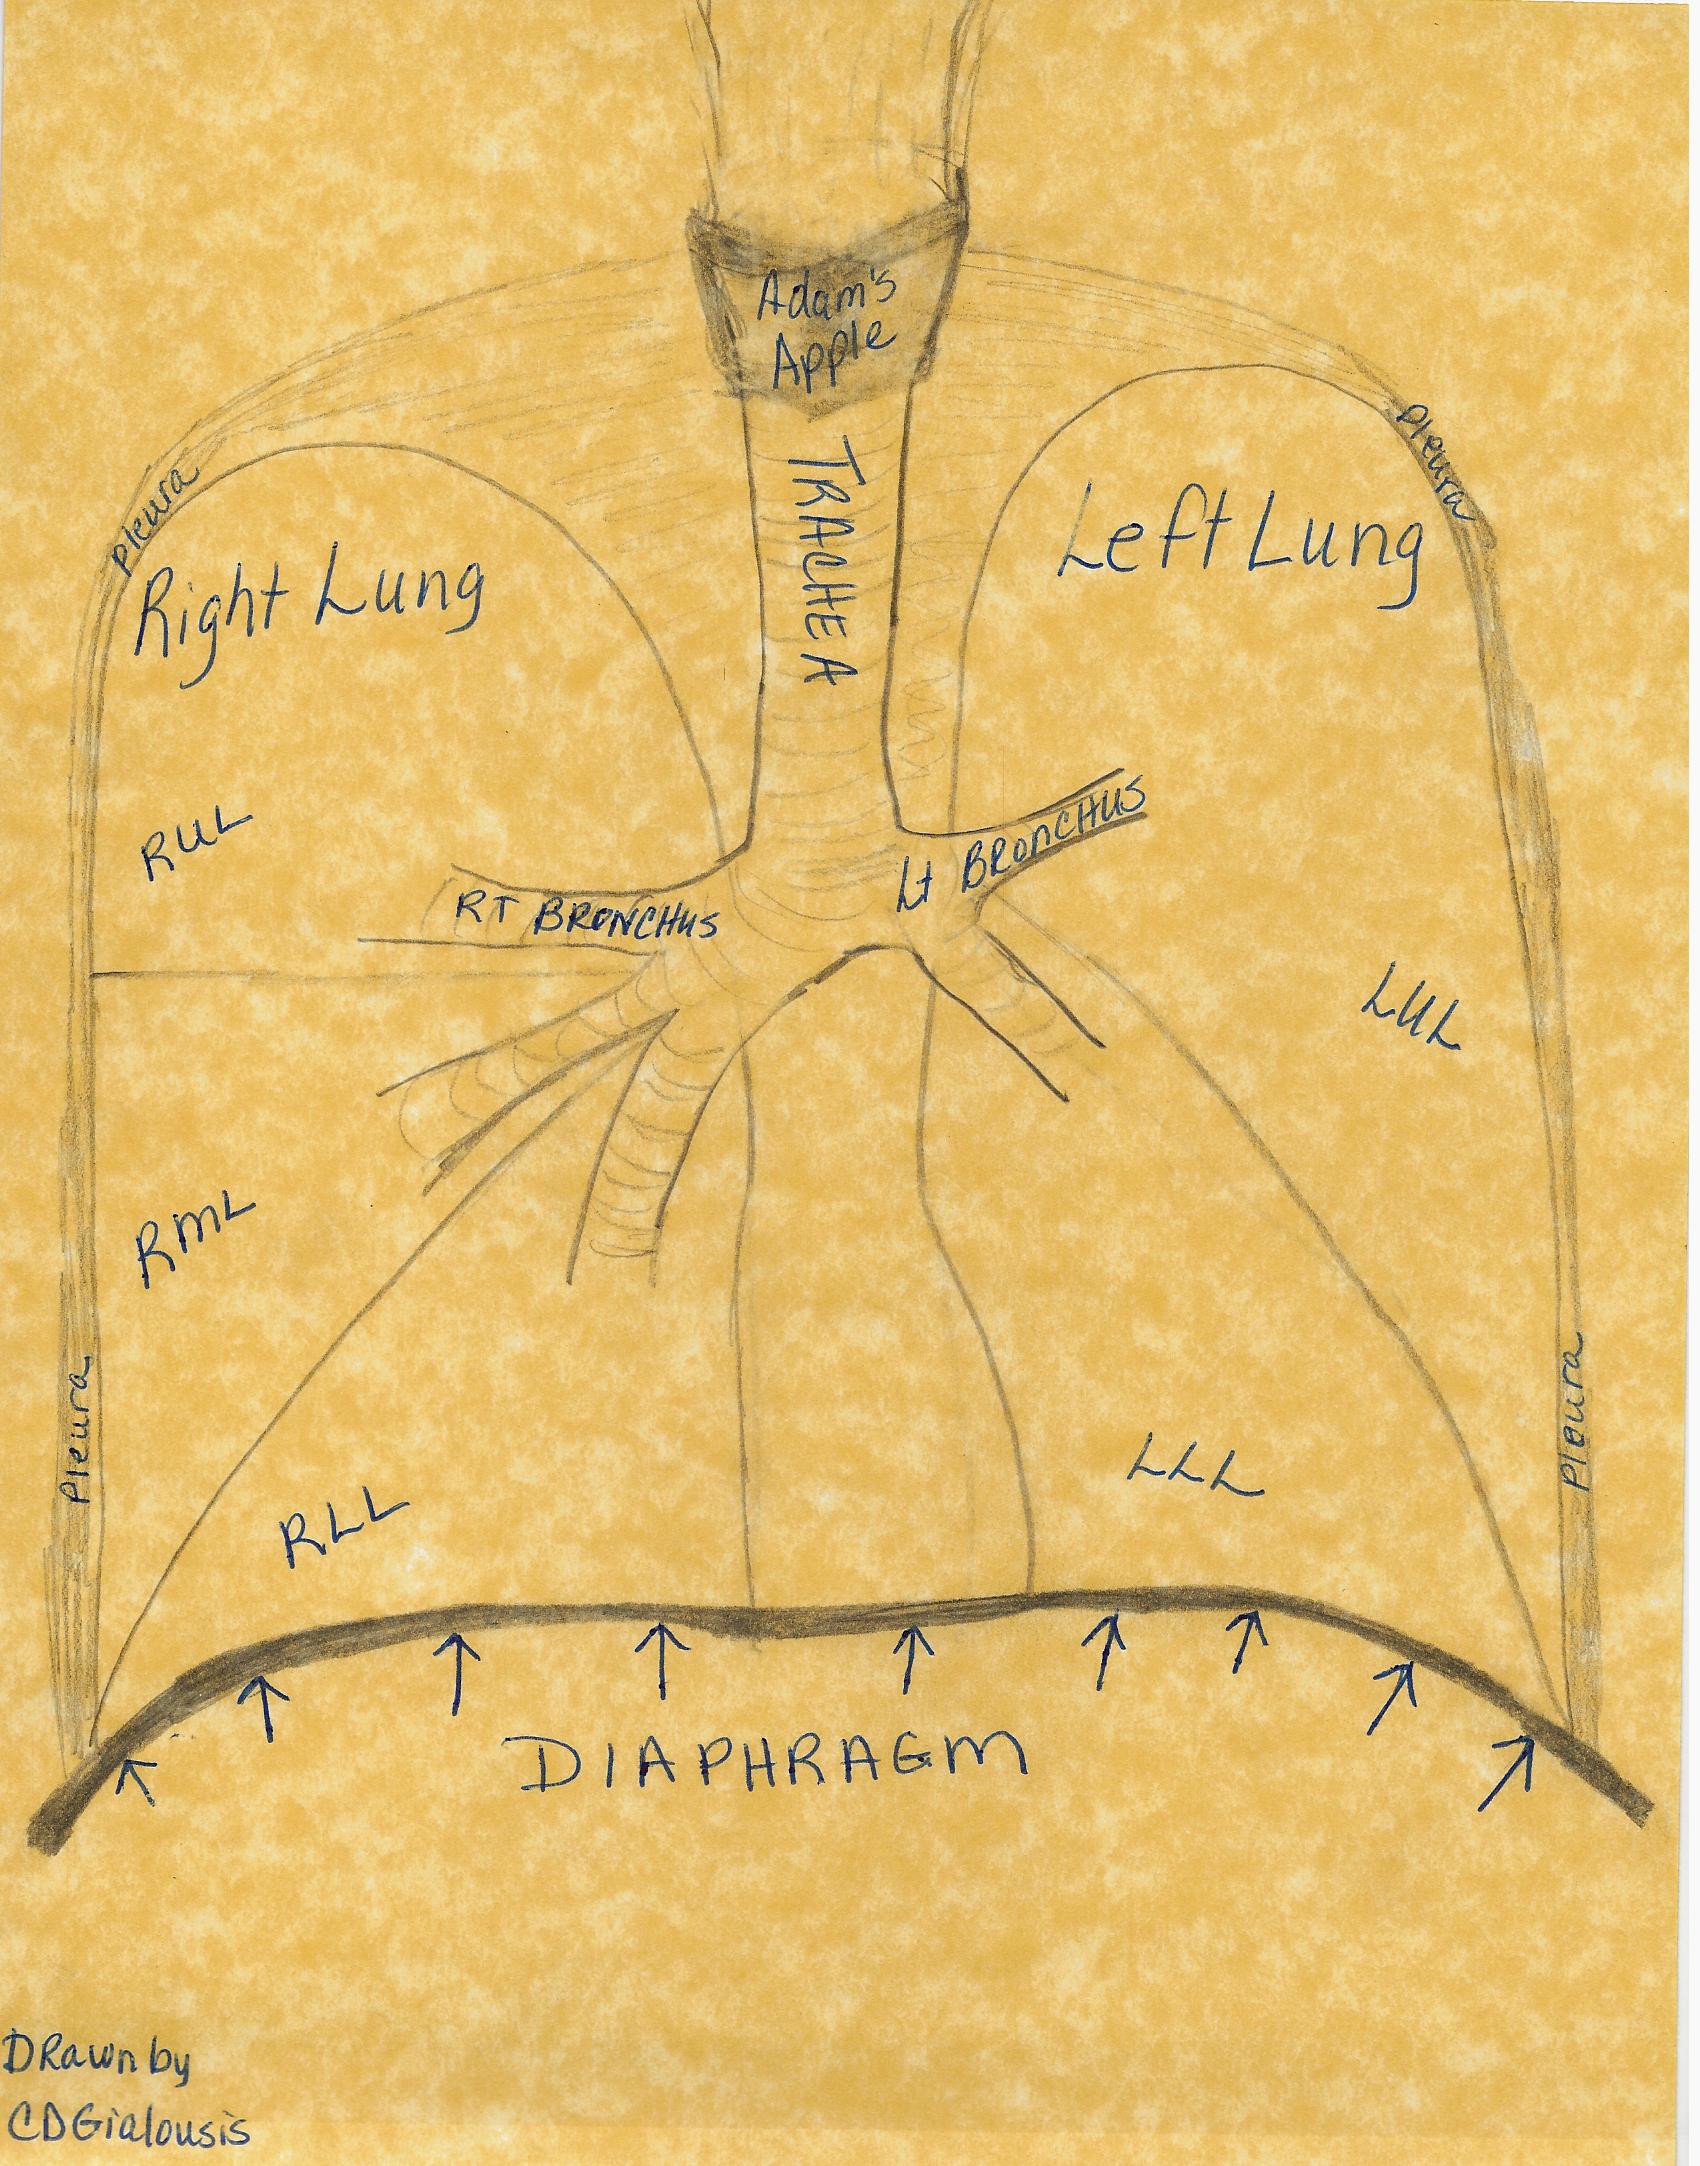 Adam's
Apple
TRACHEA
Pleura
Pleura
Right Lung
Left Lung
RUL
RT BRONCHUS
Lt BRONCHUS
LUL
RML
Pleura
Pleura
RLL
LLL
DIAPHRAGM
DRawn by
CDGialousis